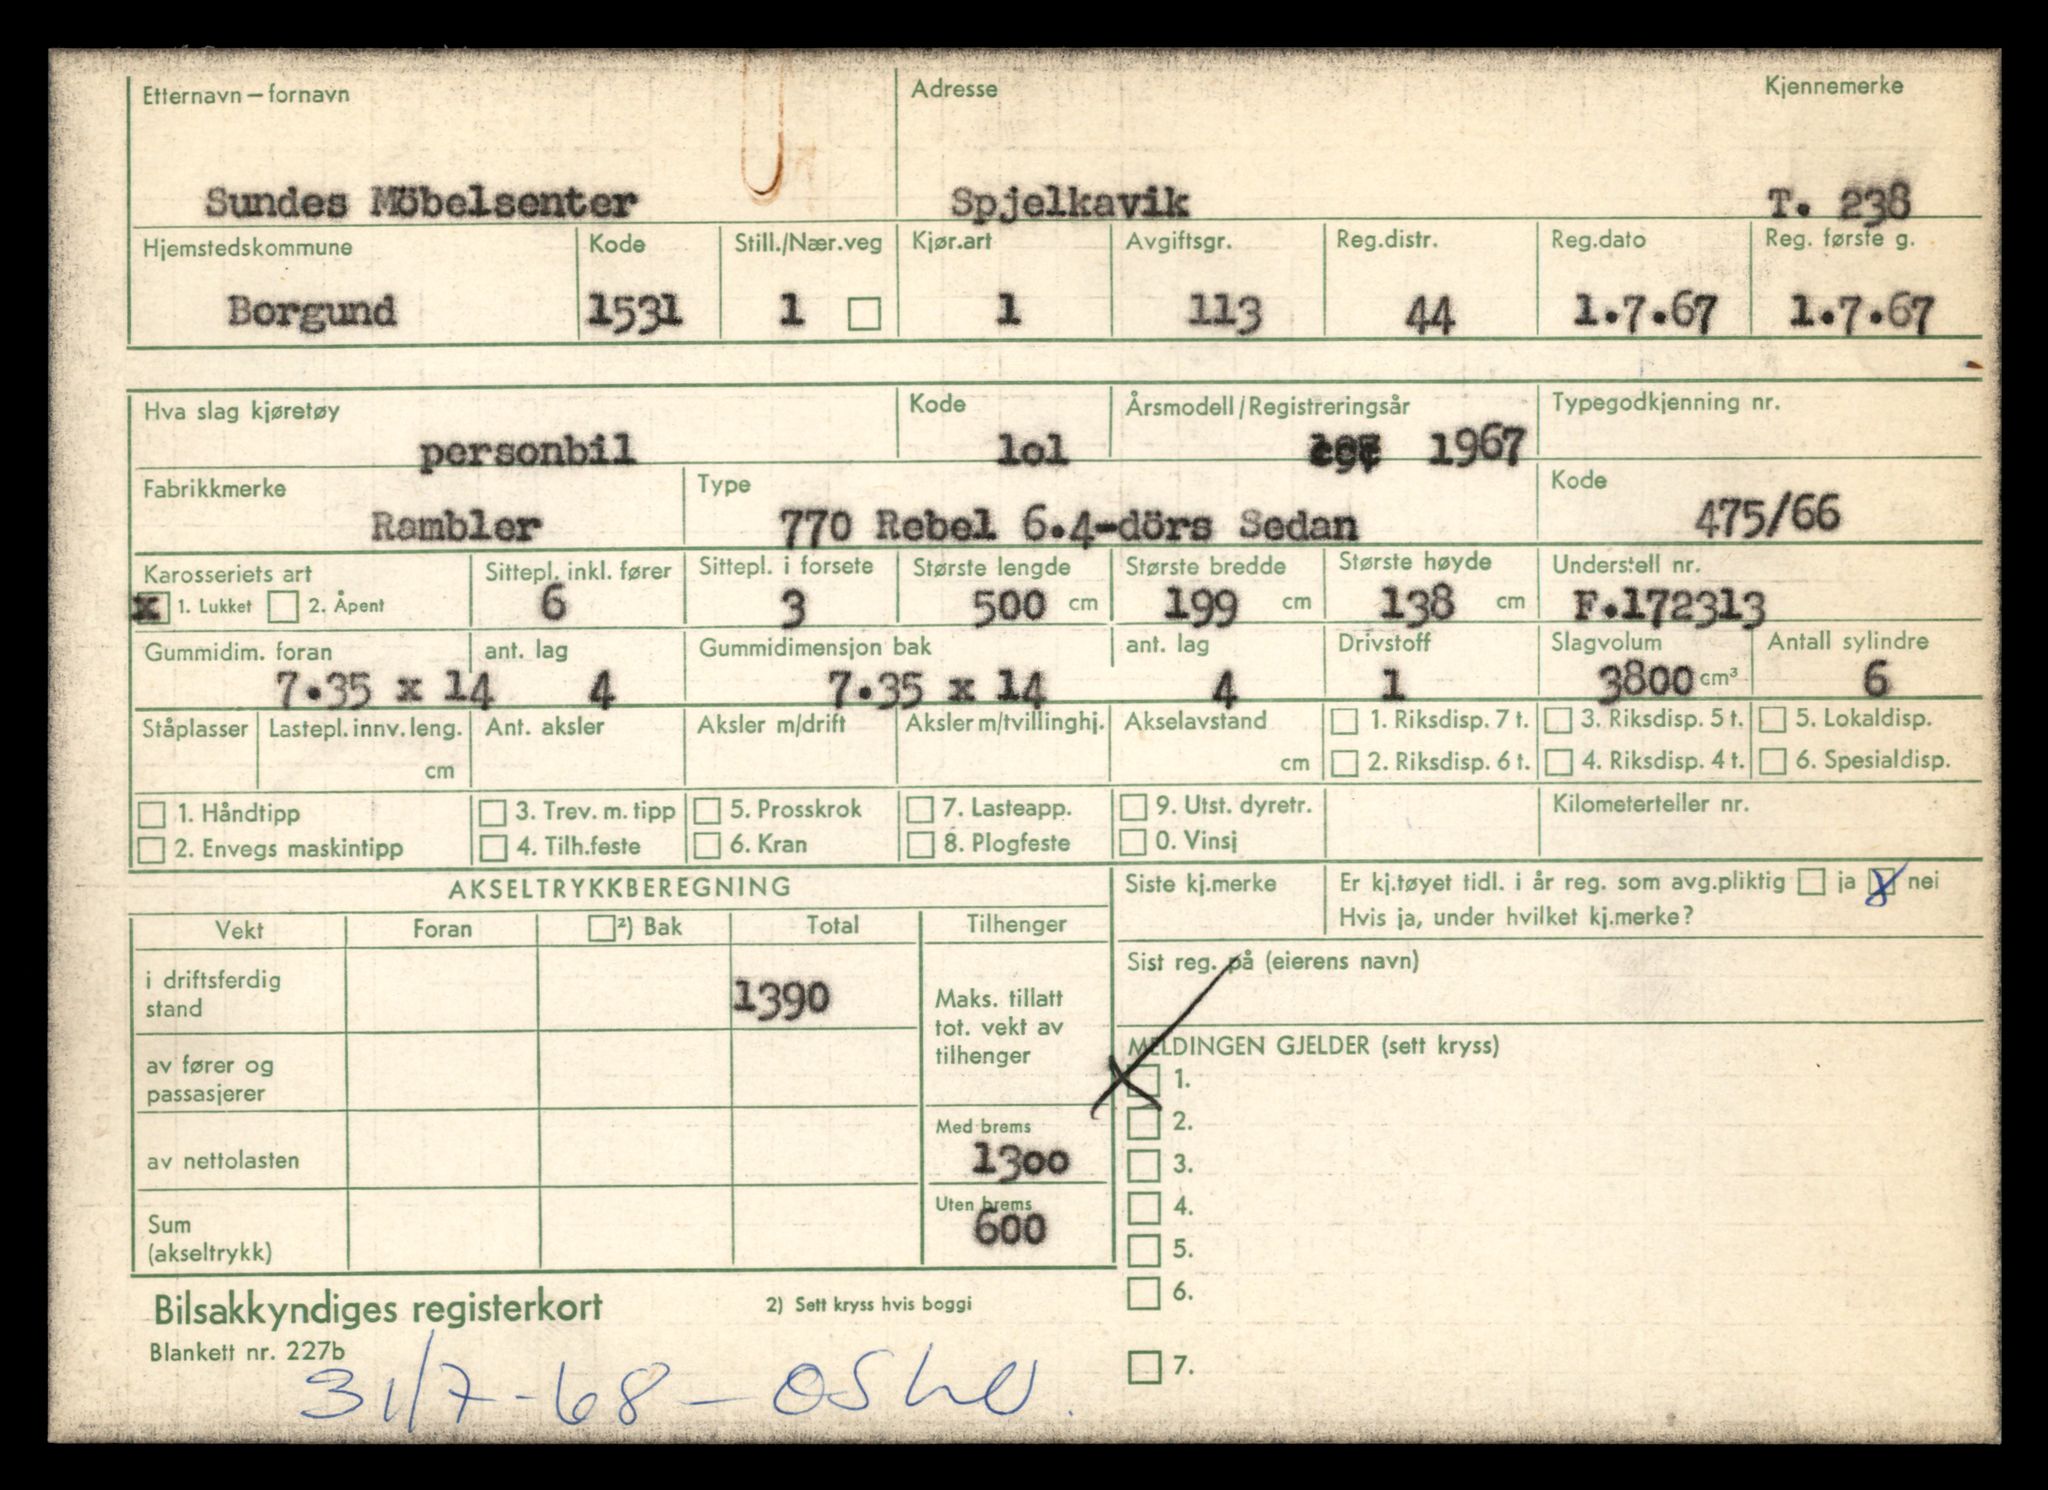 Etternavn – fornavn Adresse Kjennemerke
Sundes Möbelsenter Spjelkavik T. 238
Hjemstedskommune Kode Still./Nær.veg Kjør.art Avgiftsgr. Reg.distr. Reg.dato Reg. første g.
Borgund 1531 1 1 113 44 1.7.67 1.7.67
Hva slag kjøretøy Kode Årsmodell/Registreringsår Typegodkjenning nr.
personbil lol 1967
Fabrikkmerke Type Kode
Rambler 770 Rebel 6.4-dörs Sedan 475/66
Karosseriets art Sittepl. inkl. fører Sittepl. i forsete Største lengde Største bredde Største høyde Understell nr.
x 1. Lukket 2. Åpent 6 3 500 cm 199 cm 138 cm F.172313
Gummidim. foran ant. lag Gummidimensjon bak ant. lag Drivstoff Slagvolum Antall sylindre
7.35 x 14 4 7.35 x 14 4 1 3800 cm³ 6
Ståplasser Lastepl. innv. leng. Ant. aksler Aksler m/drift Aksler m/tvillinghj. Akselavstand 1. Riksdisp. 7 t. 3. Riksdisp. 5 t. 5. Lokaldisp.
cm cm 2. Riksdisp. 6 t. 4. Riksdisp. 4 t. 6. Spesialdisp.
1. Håndtipp 3. Trev. m. tipp 5. Prosskrok 7. Lasteapp. 9. Utst. dyretr. Kilometerteller nr.
2. Envegs maskintipp 4. Tilh.feste 6. Kran 8. Plogfeste 0. Vinsj
AKSELTRYKKBEREGNING Siste kj.merke Er kj.tøyet tidl. i år reg. som avg.pliktig ja x nei
Hvis ja, under hvilket kj.merke?
Vekt Foran ²) Bak Total Tilhenger
Sist reg. på (eierens navn)
i driftsferdig stand 1390 Maks. tillatt tot. vekt av tilhenger
MELDINGEN GJELDER (sett kryss)
av fører og passasjerer
x 1.
2.
Med brems
av nettolasten 1300
3.
4.
Uten brems
Sum (akseltrykk) 600
5.
6.
Bilsakkyndiges registerkort 2) Sett kryss hvis boggi
Blankett nr. 227b
7.
31/7-68 – OSLO.